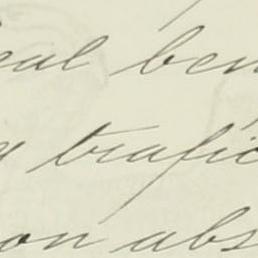 eal ben
trafic
on abs